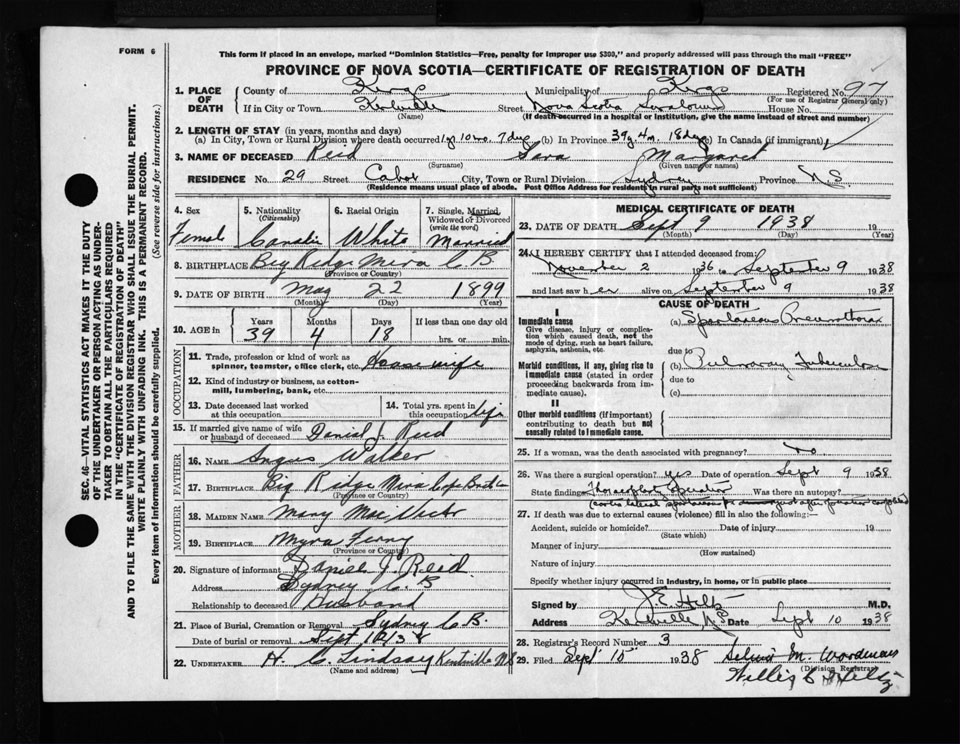 FORM 6
This form if placed in an envelope, marked "Dominion Statistics—Free, penalty for improper use $300," and properly addressed will pass through the mail "FREE"
PROVINCE OF NOVA SCOTIA—CERTIFICATE OF REGISTRATION OF DEATH
SEC. 46—VITAL STATISTICS ACT MAKES IT THE DUTY
OF THE UNDERTAKER OR PERSON ACTING AS UNDER-
TAKER TO OBTAIN ALL THE PARTICULARS REQUIRED
IN THE "CERTIFICATE OF REGISTRATION OF DEATH"
AND TO FILE THE SAME WITH THE DIVISION REGISTRAR WHO SHALL ISSUE THE BURIAL PERMIT.
WRITE PLAINLY WITH UNFADING INK. THIS IS A PERMANENT RECORD.
Every item of information should be carefully supplied. (See reverse side for instructions.)
1. PLACE OF DEATH County of Kings Municipality of Kings Registered No. 97
(For use of Registrar General only)
If in City or Town Kentville Street Nova Scotia House No.
(Name) (If death occurred in a hospital or institution, give the name instead of street and number)
2. LENGTH OF STAY (in years, months and days)
(a) In City, Town or Rural Division where death occurred 1 y 10 mo. 7 dys (b) In Province 39 y 4 m. 18 dys (c) In Canada (if immigrant)
3. NAME OF DECEASED Reid Sara Margaret
(Surname) (Given name or names)
RESIDENCE No. 29 Street Cabot City, Town or Rural Division Sydney Province N.S
(Residence means usual place of abode. Post Office Address for residents in rural parts not sufficient)
4. Sex Femal
5. Nationality (Citizenship)
6. Racial Origin White
7. Single, Married, Widowed or Divorced (write the word) Married
8. BIRTHPLACE Big Ridge Mira C B
(Province or Country)
9. DATE OF BIRTH May 22 1899
(Month) (Day) (Year)
10. AGE in Years Months Days If less than one day old
39 4 18 hrs. or min.
OCCUPATION
11. Trade, profession or kind of work as spinner, teamster, office clerk, etc. Housewife
12. Kind of industry or business, as cotton-mill, lumbering, bank, etc.
13. Date deceased last worked at this occupation
14. Total yrs. spent in this occupation
15. If married give name of wife or husband of deceased Daniel J. Reid
FATHER
16. Name Angus Walker
17. Birthplace Big Ridge Mira Cape Breton
(Province or Country)
MOTHER
18. Maiden Name Mary
19. Birthplace Myra Ferry
(Province or Country)
20. Signature of informant Daniel J. Reid
Address Sydney C. B
Relationship to deceased Husband
21. Place of Burial, Cremation or Removal Sydney C.B.
Date of burial or removal Sept
22. UNDERTAKER H. C. Lindsay Kentville N S
(Name and address)
MEDICAL CERTIFICATE OF DEATH
23. DATE OF DEATH Sept 9 1938 19
(Month) (Day) (Year)
24. I HEREBY CERTIFY that I attended deceased from:
November 2 1936 to September 9 1938
and last saw her alive on September 9 1938
CAUSE OF DEATH
I
Immediate cause
Give disease, injury or complication which caused death, not the mode of dying, such as heart failure, asphyxia, asthenia, etc.
(a) Spontaneous Pneumothorax
due to
Morbid conditions, if any, giving rise to immediate cause (stated in order proceeding backwards from immediate cause).
(b) Pulmonary Tuberculosis
due to
(c)
II
Other morbid conditions (if important) contributing to death but not causally related to immediate cause.
25. If a woman, was the death associated with pregnancy? no
26. Was there a surgical operation? yes Date of operation Sept 9 1938
State findings Was there an autopsy?
27. If death was due to external causes (violence) fill in also the following:—
Accident, suicide or homicide? Date of injury 19
(State which)
Manner of injury
(How sustained)
Nature of injury
Specify whether injury occurred in industry, in home, or in public place
Signed by M.D.
Address Kentville NS Date Sept 10 1938
28. Registrar's Record Number 3
29. Filed Sept 10 1938
(Division Registrar)